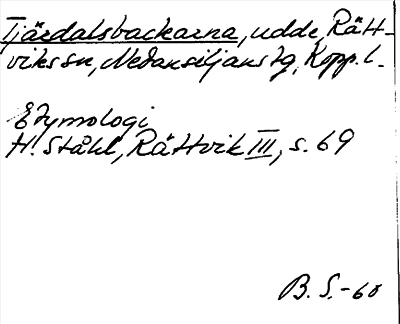 Tjärdalsbackarna, udde, Rätt-
viks sn, Nedansiljans tg, Kopp. l.
Etymologi
H. Ståhl, Rättvik III, s. 69
B. S. -60